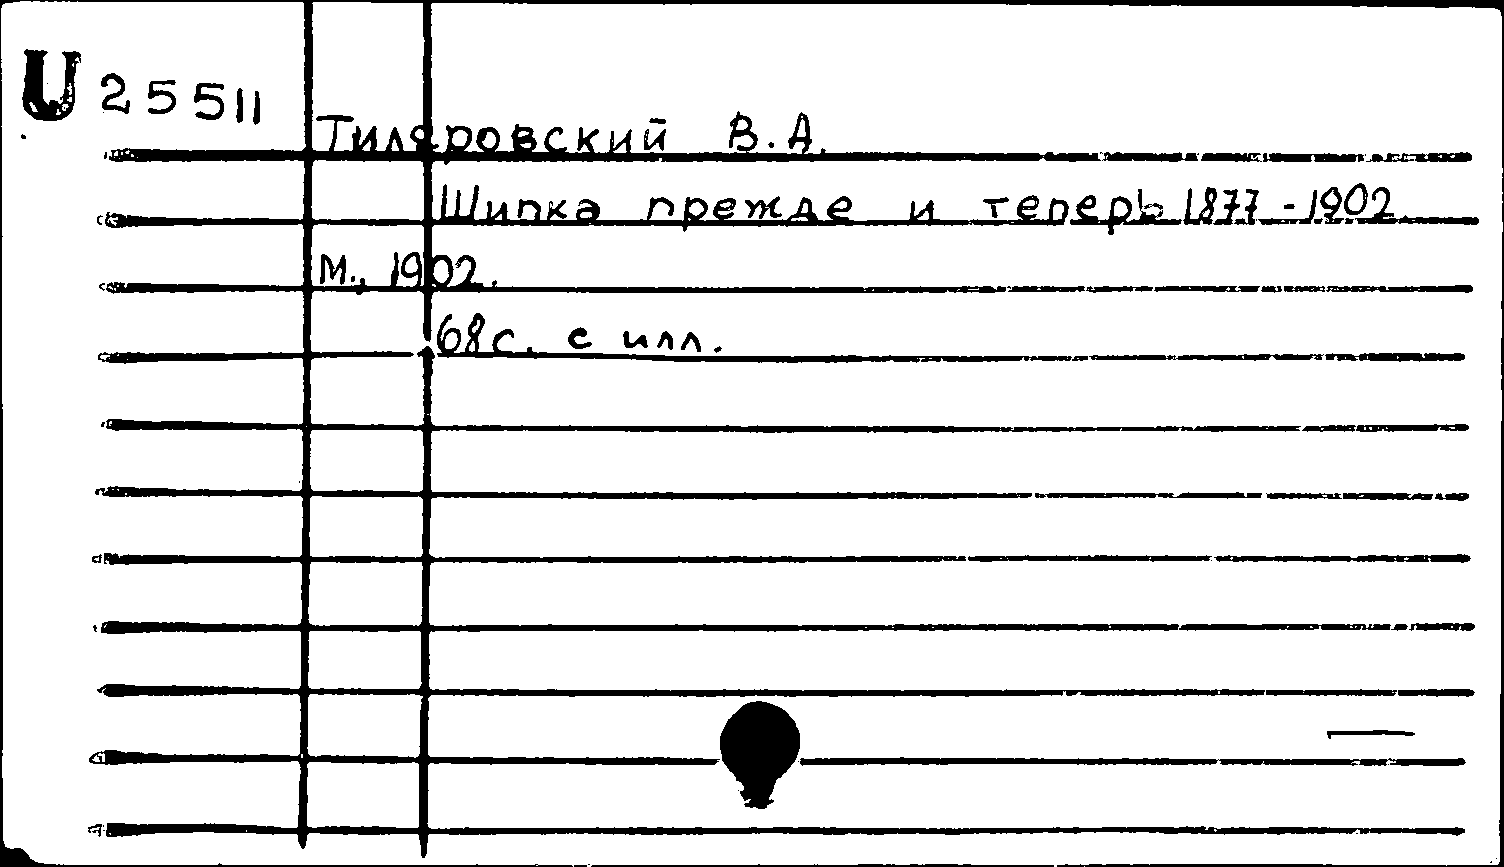 U 25511
Тиляровский В.А.
Шипка прежде и теперь 1877-1902.
М., 1902.
68с. с илл.